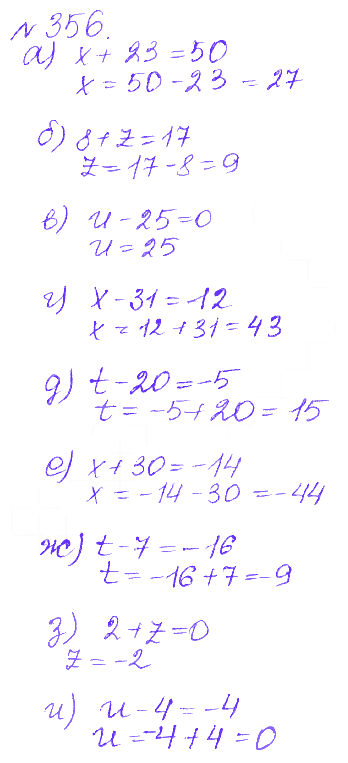 № 356.
а) x + 23 = 50
x = 50 - 23 = 27
б) 8 + z = 17
z = 17 - 8 = 9
в) u - 25 = 0
u = 25
г) x - 31 = -12
x = 12 + 31 = 43
д) t - 20 = -5
t = -5 + 20 = 15
е) x + 30 = -14
x = -14 - 30 = -44
ж) t - 7 = -16
t = -16 + 7 = -9
з) 2 + z = 0
z = -2
и) u - 4 = -4
u = -4 + 4 = 0